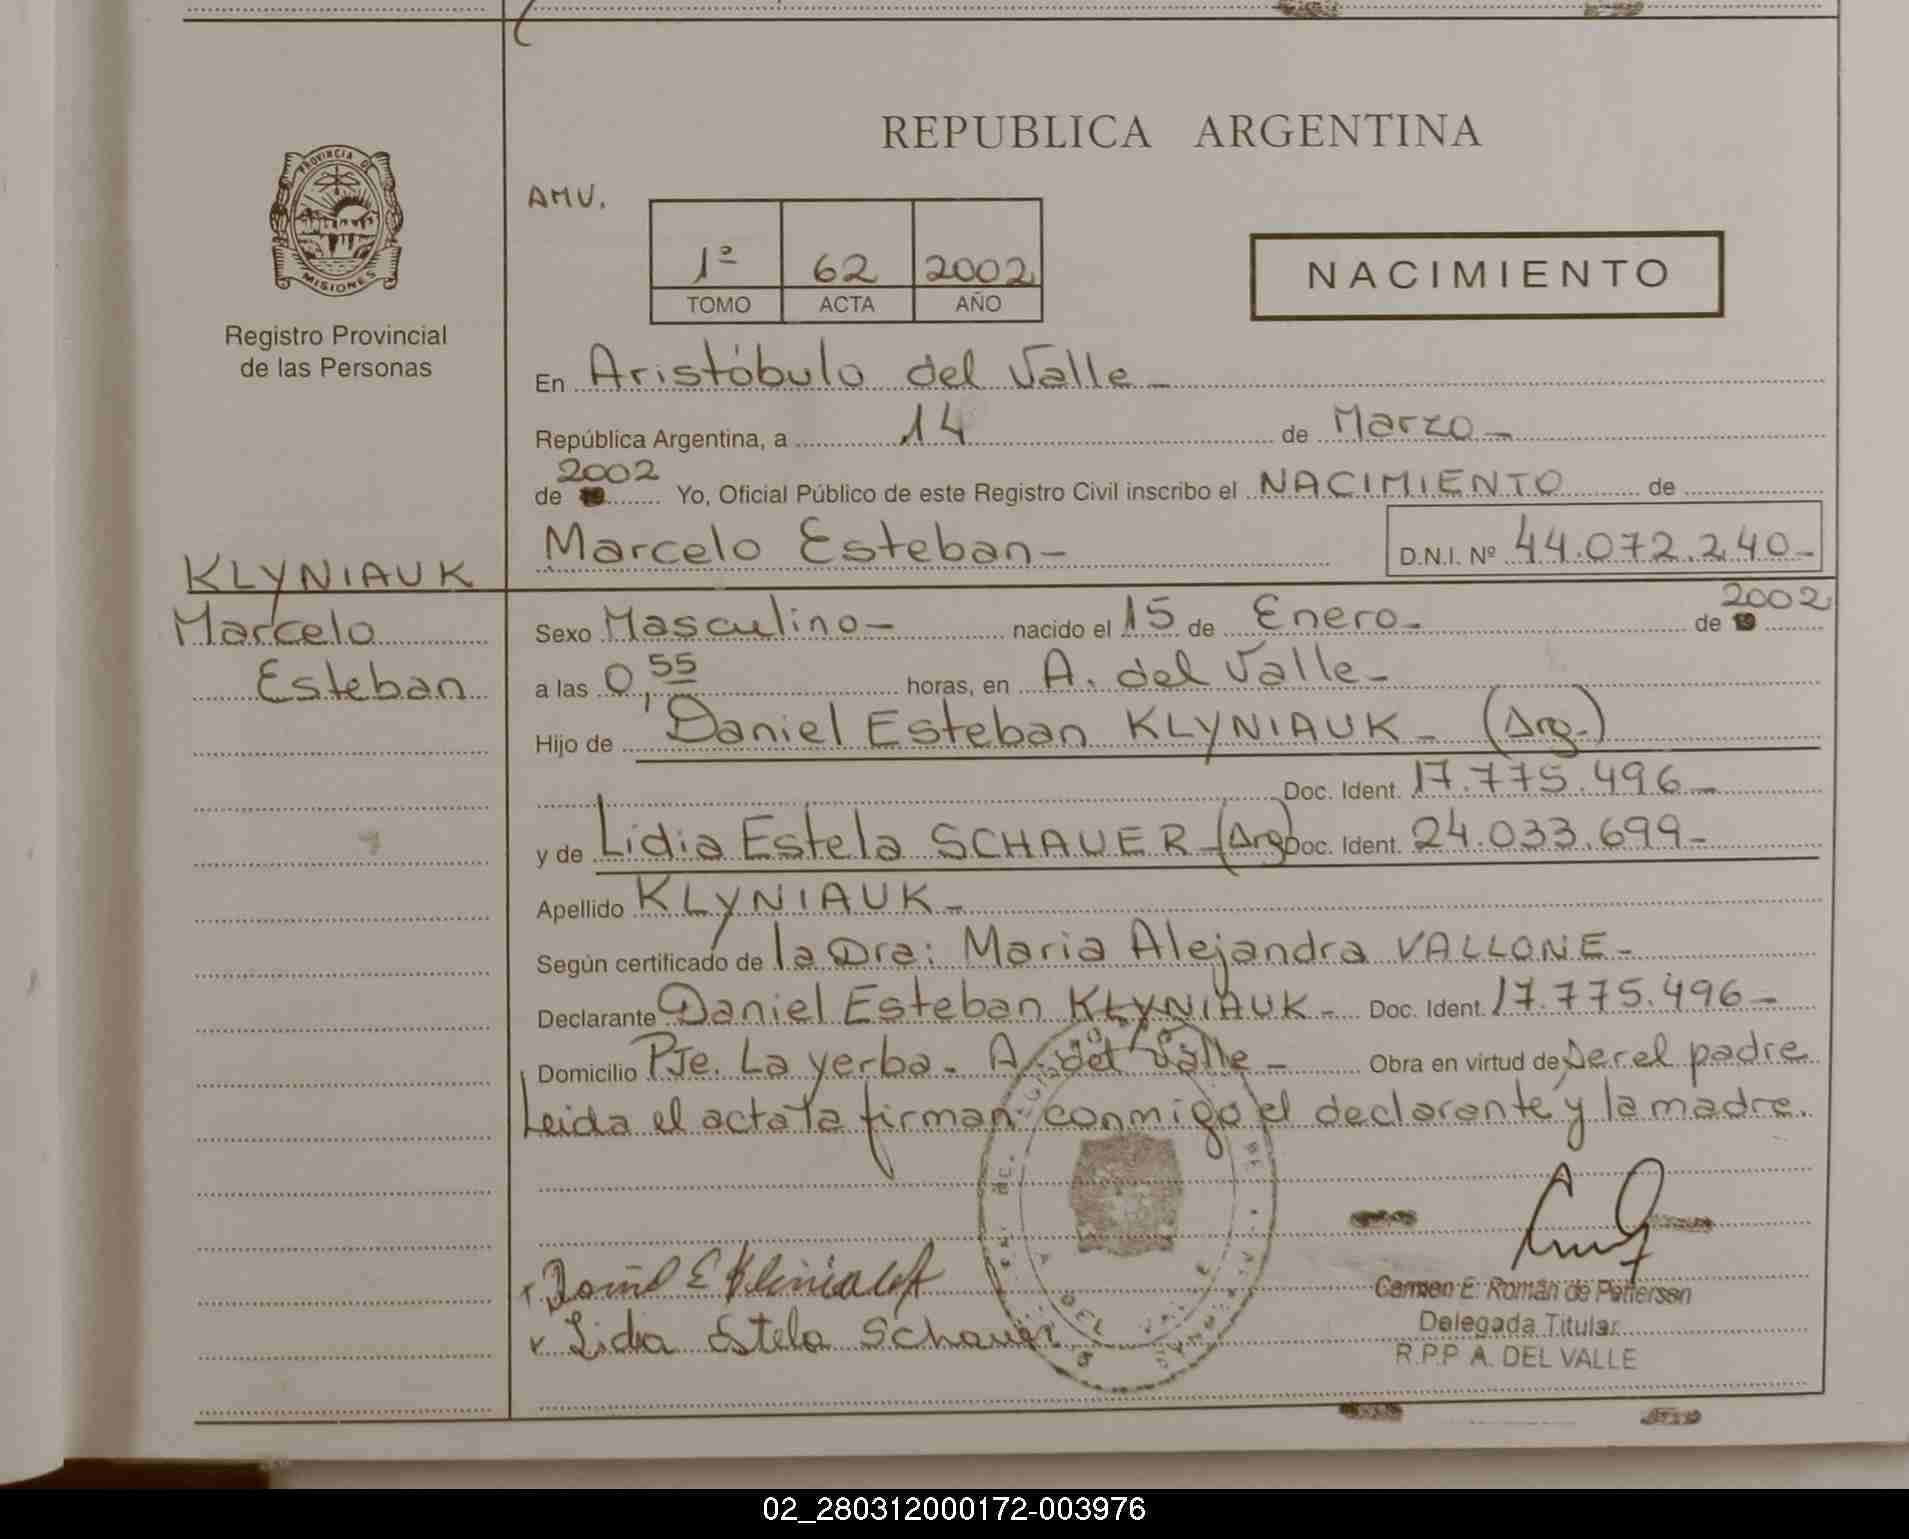 REPUBLICA ARGENTINA
PROVINCIA DE
MISIONES
Registro Provincial
de las Personas
AMV.
1º 62 2002
TOMO ACTA AÑO
NACIMIENTO
En Aristóbulo del Valle
República Argentina, a 14 de Marzo
de 2002 Yo, Oficial Público de este Registro Civil inscribo el NACIMIENTO de
Marcelo Esteban D.N.I. Nº 44.072.240
KLYNIAUK
Marcelo
Esteban
Sexo Masculino nacido el 15 de Enero de 2002
a las 0,55 horas, en A. del Valle
Hijo de Daniel Esteban KLYNIAUK (Arg.)
Doc. Ident. 17.775.496
y de Lidia Estela SCHAUER (Arg) Doc. Ident. 24.033.699
Apellido KLYNIAUK
Según certificado de la Dra: Maria Alejandra VALLONE
Declarante Daniel Esteban KLYNIAUK Doc. Ident. 17.775.496
Domicilio Pje. La yerba. A. del Valle Obra en virtud de ser el padre
Leida el acta la firman conmigo el declarante y la madre.
Lidia Estela Schauer
Carmen E. Román de Pettersen
Delegada Titular
R.P.P A. DEL VALLE
02_280312000172-003976